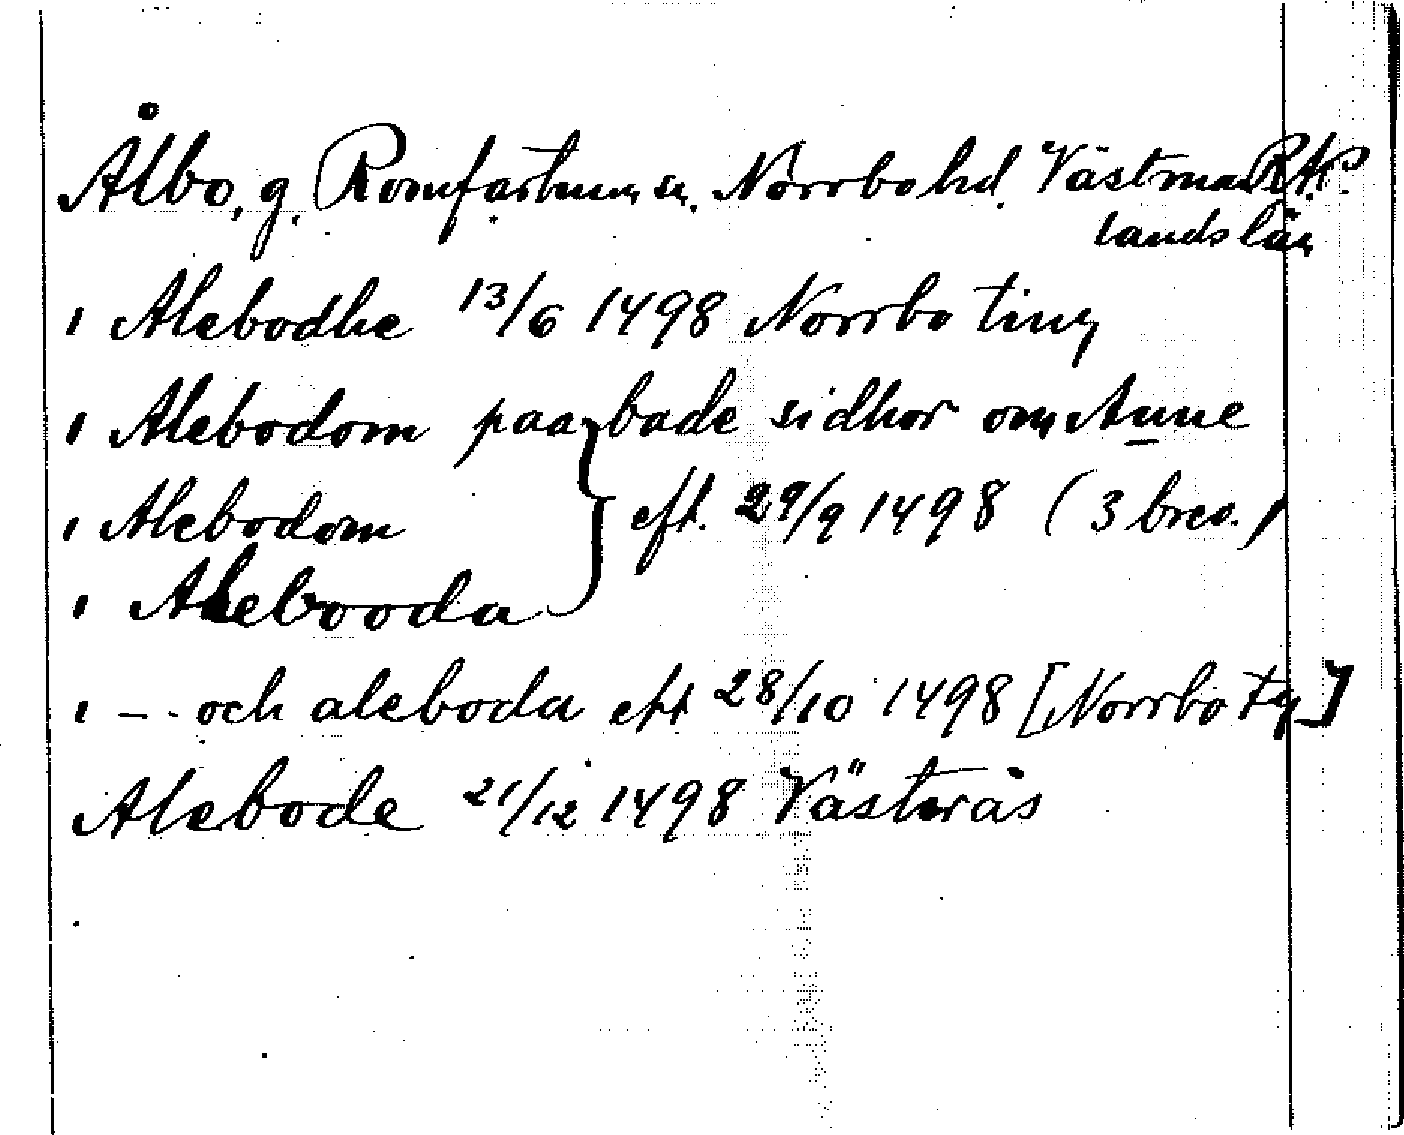 Ålbo, g. Romfartuna sn. Norrbo hd. Västman R.A.P.
lands län
i Alebodhe 13/6 1498 Norrbo ting
i Alebodom paa bade sidhor om Aune
i Alebodom } eft. 29/9 1498 (3 brev.)
i Alebooda
i -- och aleboda eft 28/10 1498 [Norrbo tg]
Alebode 21/12 1498 Västerås